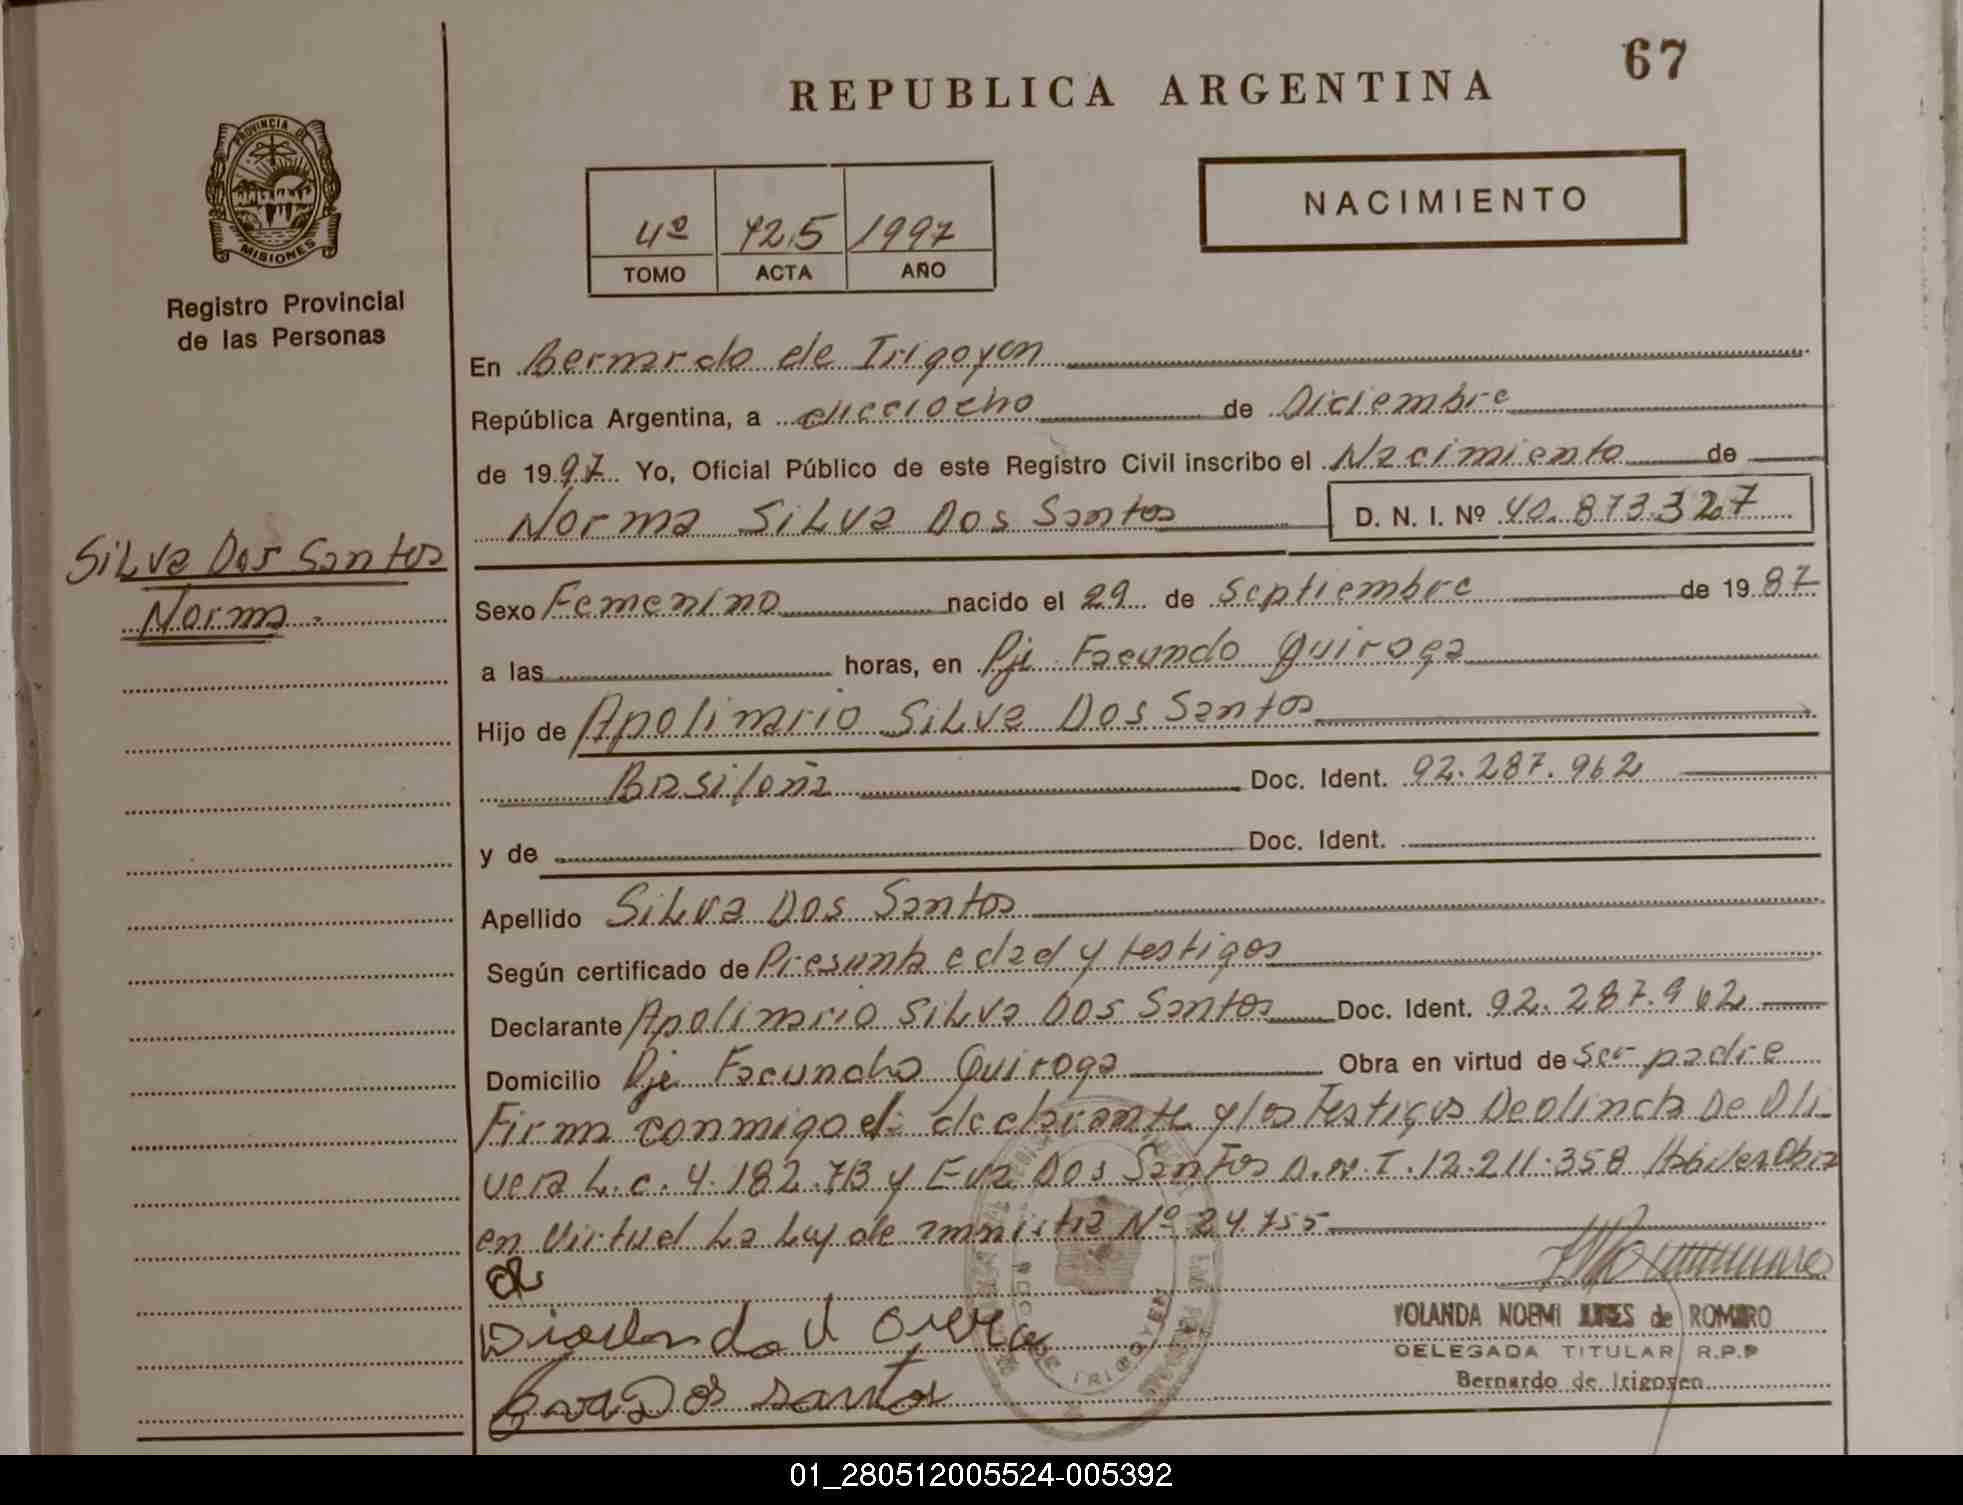 67
REPUBLICA ARGENTINA
PROVINCIA DE
MISIONES
Registro Provincial
de las Personas
4º 725 1997
TOMO ACTA AÑO
NACIMIENTO
En Bernardo de Irigoyen
República Argentina, a dieciocho de Diciembre
de 1997 Yo, Oficial Público de este Registro Civil inscribo el Nacimiento de
Norma SiLva Dos Santos D. N. I. Nº 40.873.327
SiLva Dos Santos
Norma.
Sexo Femenino nacido el 29 de Septiembre de 1987
a las horas, en Pje Facundo Quiroga
Hijo de Apolinario SiLva Dos Santos
Brasileña Doc. Ident. 92.287.962
y de Doc. Ident.
Apellido SiLva Dos Santos
Según certificado de Presunta edad y testigos
Declarante Apolinario SiLva Dos Santos Doc. Ident. 92.287.962
Domicilio Pje Facundo Quiroga Obra en virtud de ser padre
Firma conmigo el declarante y los Testigos Deolinda De Oli-
vera L.c. 4.182.713 y Eva Dos Santos D.N.I. 12.211.358 Hábiles Obra
en Virtud La Ley de amnistia Nº 24.755
Eva Dos santos
YOLANDA NOEMI de ROMERO
DELEGADA TITULAR R.P.P
Bernardo de Irigoyen
01_280512005524-005392